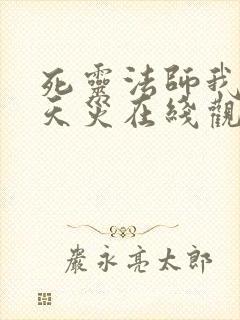 死靈法師我
天災在綫觀
嚴永亮太郎